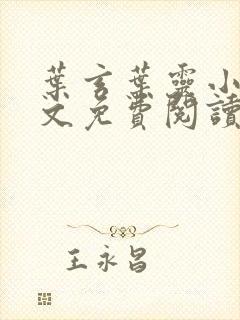 葉言葉靈小
文免費閱讀
王永昌